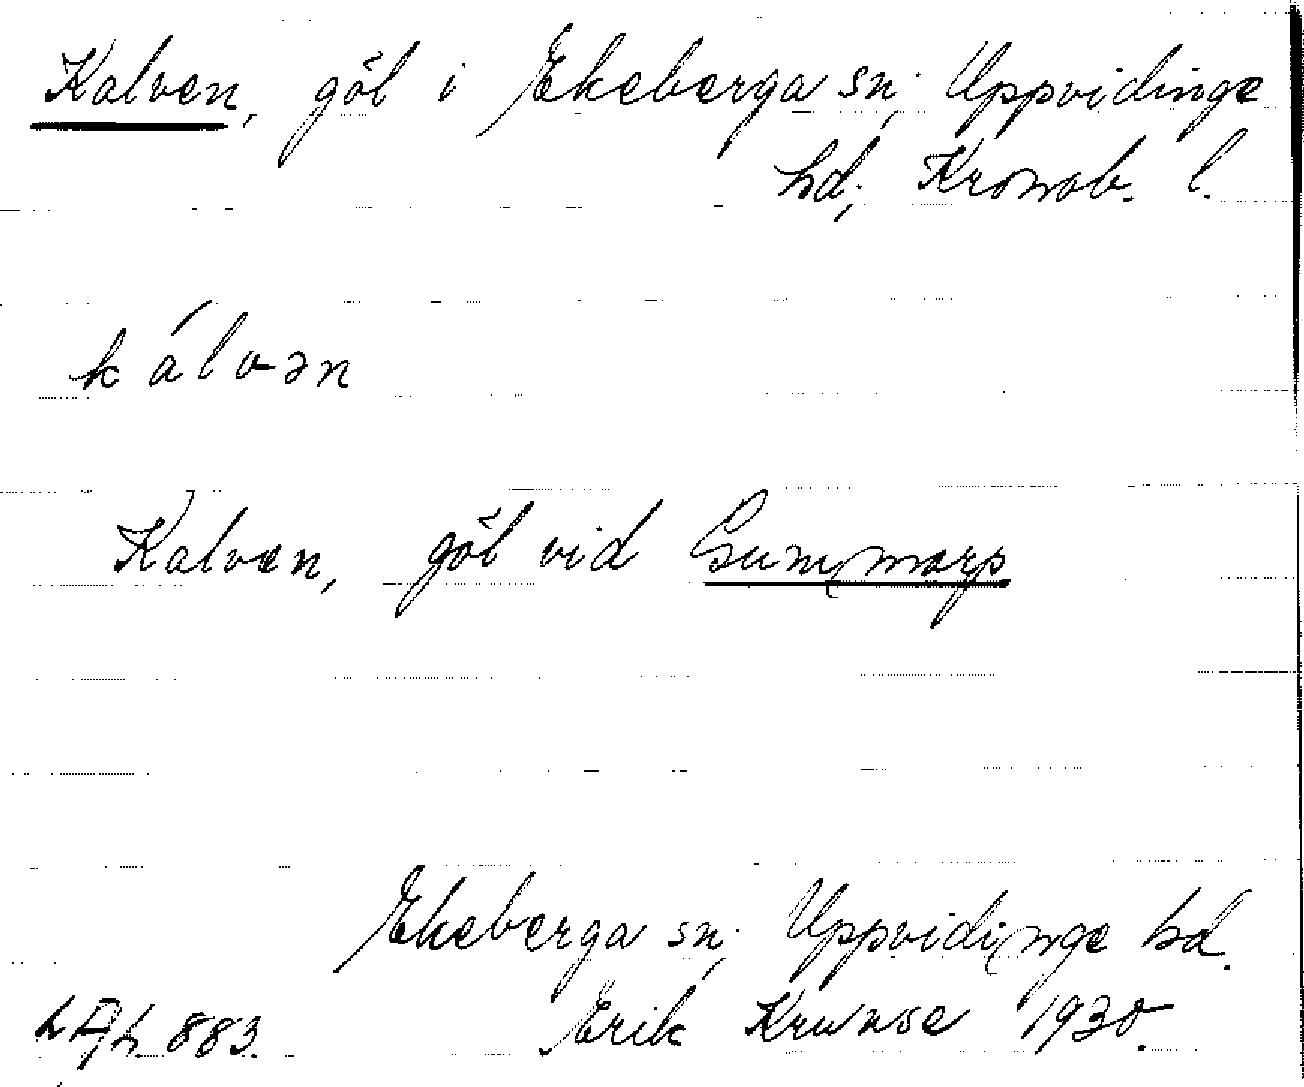 Kalven, göl i Ekeberga sn; Uppvidinge
hd; Kronob. l.
kálvən
Kalven, göl vid Gummarp
Ekeberga sn; Uppvidinge hd.
883. Erik Krunse 1930.